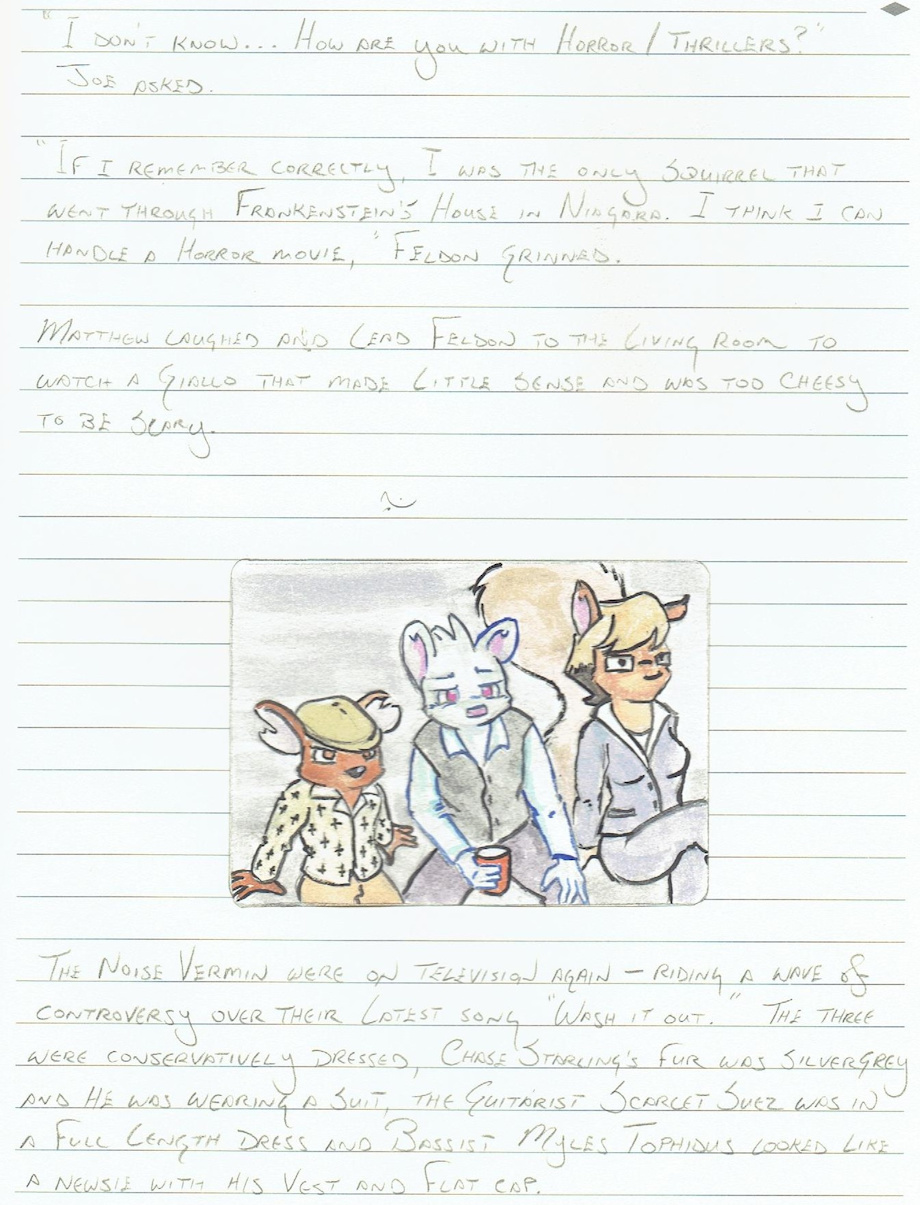 "I don't know... How are you with Horror/Thrillers?"
Joe asked.
"If I remember correctly, I was the only squirrel that
went through Frankenstein's House in Niagara. I think I can
handle a Horror movie," Feldon grinned.
Matthew laughed and lead Feldon to the living room to
watch a Giallo that made little sense and was too cheesy
to be scary.
The Noise Vermin were on television again – riding a wave of
controversy over their latest song "Wash it out." The three
were conservatively dressed, Chase Starling's fur was silvergrey
and he was wearing a suit, the guitarist Scarlet Suez was in
a full length dress and bassist Myles Tophidus looked like
a newsie with his vest and flat cap.